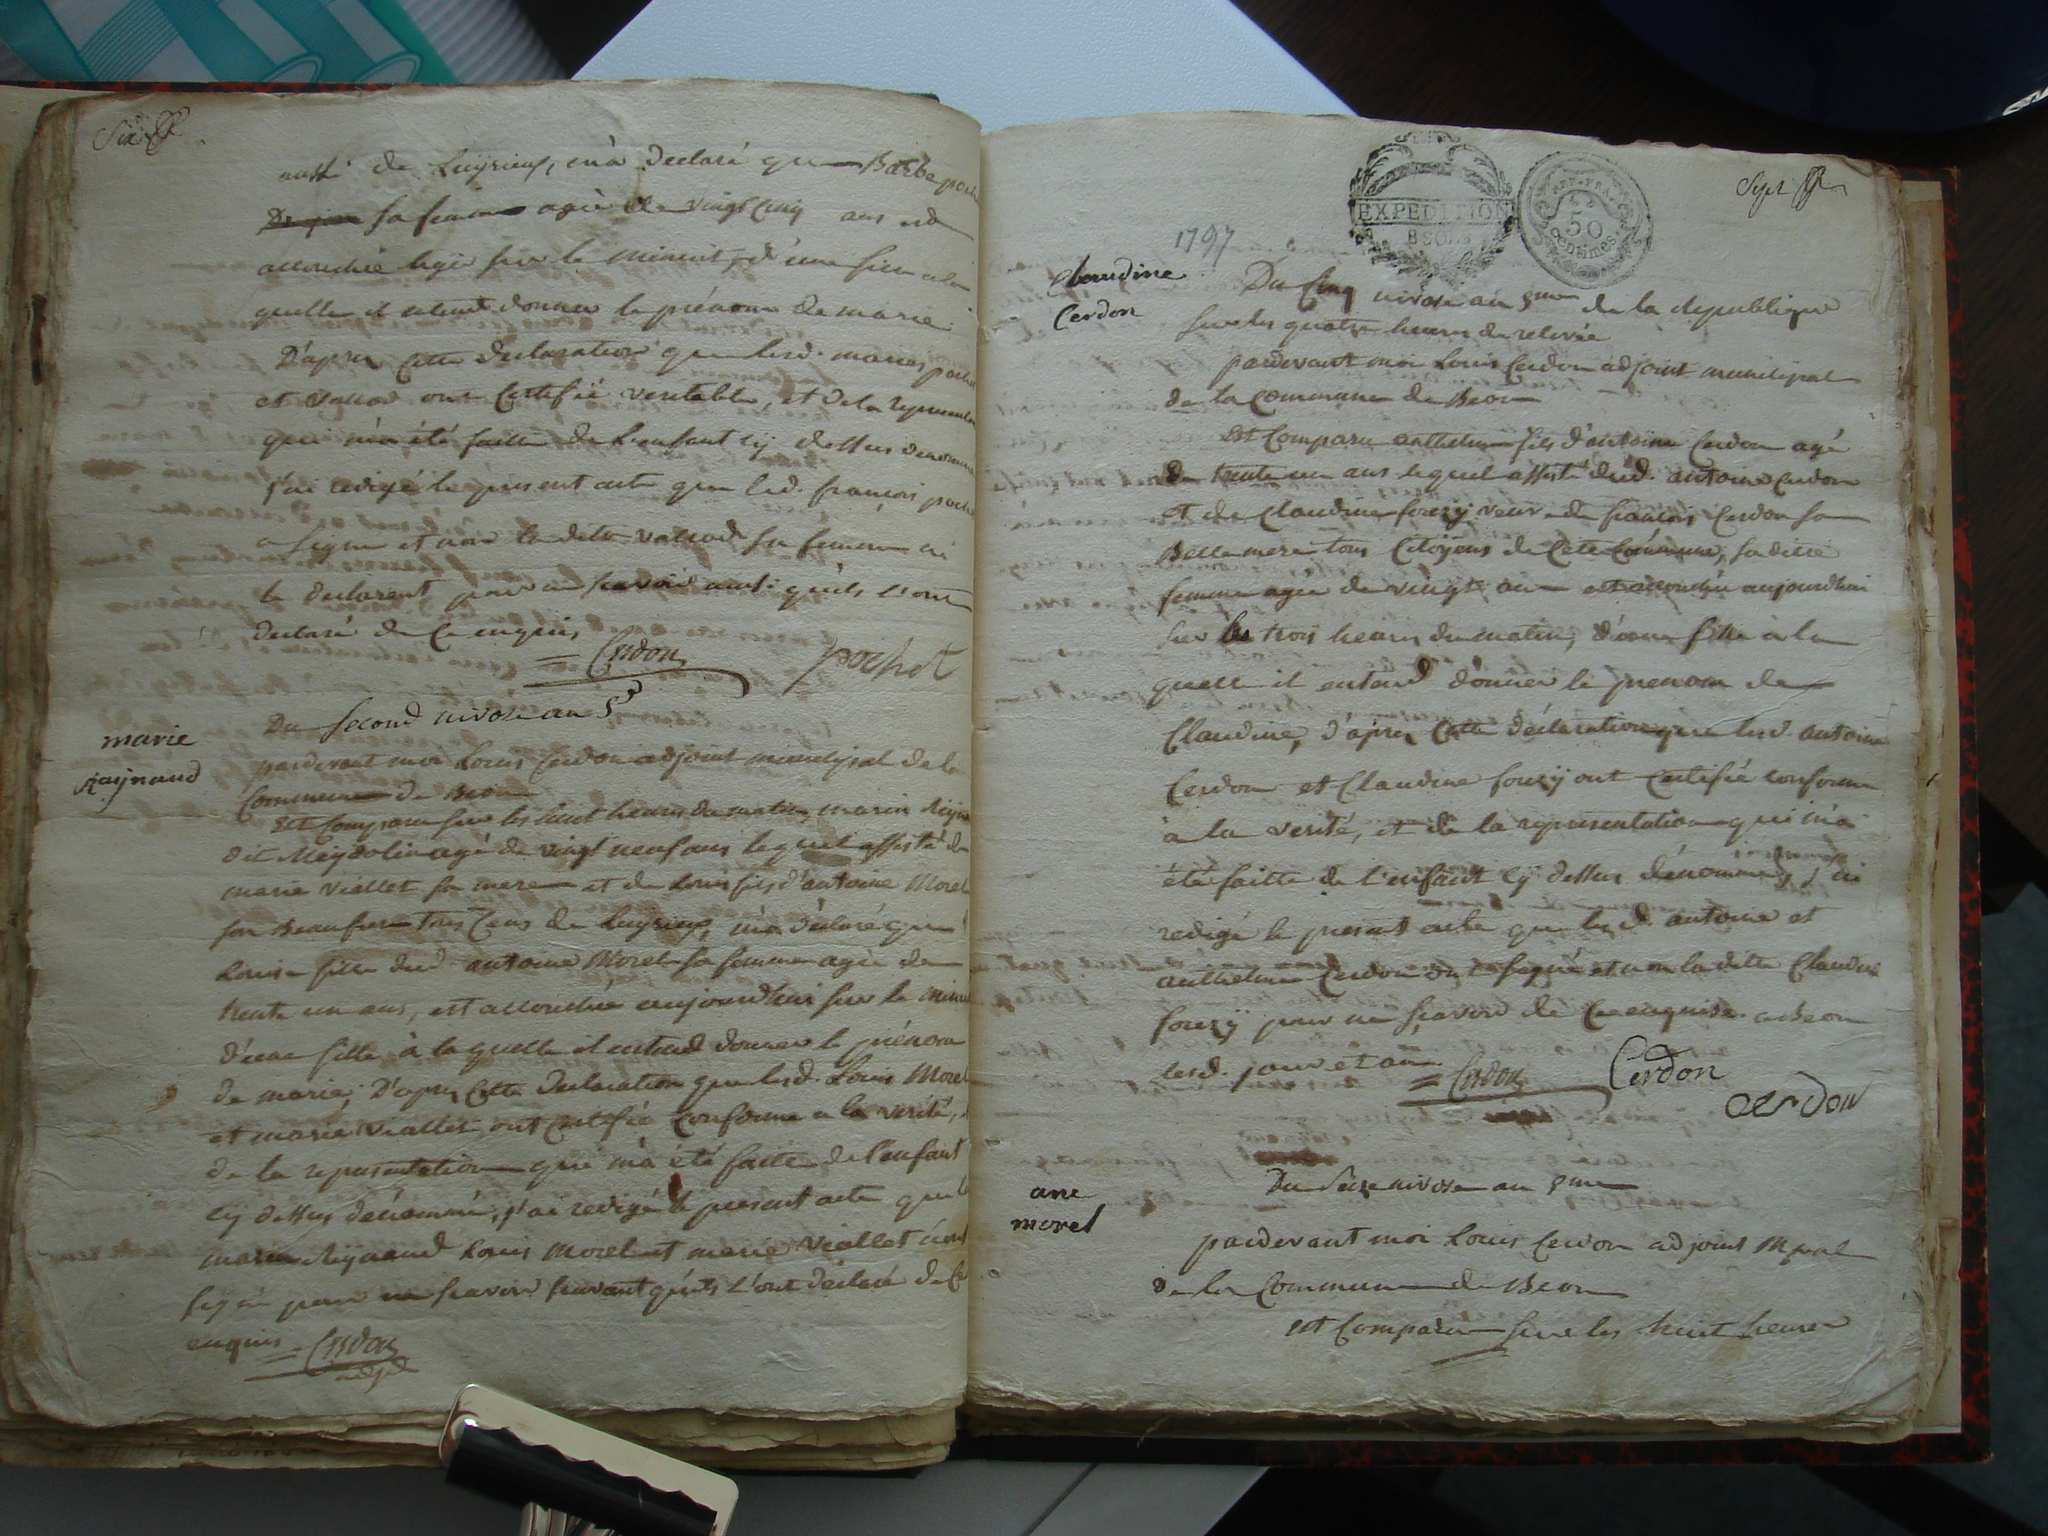 Six
aussi de Luyrieux, m'a declaré que Barbe poch
sa femme agée de vingt cinq ans est
accouchée hyer sur le minuit, d'une fille a la
quelle il entend donner le prénom de marie.
D'apres cette declaration que lesd. maries poche
et vallod ont certifié veritable, et de la representa
qui m'a été faitte de l'enfant cy dessus denommé
j'ai redigé le present acte que led. françois poche
a signé et non la dite vallod sa femme
le declarent pour ne scavoir ainsi qu'ils l'ont
declaré de ce enquis,
= Cerdon pochet
marie
Raynaud
Du second nivose an 5e
pardevant moi Louis Cerdon adjoint municipal de la
Commune de Beon
Est Comparu sur les huit heures du matin marin Reyn
dit agé de vingt neuf ans lequel assisté de
marie viallet sa mere et de Louis fils d'antoine Morel
son Beaufrere tous Cens de Luyrieux, m'a déclaré que
Louise fille dud antoine Morel sa femme agée de
trente un ans, est accouchée aujourdhui sur le minuit
d'une fille à la quelle il entend donner le prénom
de marie, D'apres cette declaration que lesd. Louis Morel
et marie viallet ont certifié conforme a la verité,
de la representation qui m'à été faite de l'enfant
cy dessus dénommé, j'ai redigé le present acte que
marin Reynaud Louis Morel et marie viallet n'ont
signé pour ne scavoir suivant qu'ils l'ont déclaré de ce
enquis = Cerdon
adjt
EXPEDITION
REP. FRA.
50
centimes
Sept
1797
claudine
Cerdon
Du Cinq nivose an 5me de la republique
sur les quatre heures de relevée
pardevant moi Louis Cerdon adjoint municipal
de la Commune de Beon
Est Comparu anthelme fils d'antoine Cerdon agé
de trente un ans lequel assisté dud. antoine Cerdon
et de Claudine fouzÿ veuve de françois Cerdon sa
Belle mere tous Citoÿens de Cete Commune, sa ditte
femme agée de vingt ans est accouchée aujourdhui
sur les trois heures du matin, d'une fille à la
quelle il entend donner le prenom de
Claudine, d'apres cette déclaration que lesd. antoine
Cerdon et Claudine fouzÿ ont certifié conforme
à la verité, et de la representation qui m'a
été faitte de l'enfant cy dessus dénommé, j'ai
redigé le present acte que lesd. antoine et
anthelme Cerdon ont signé et non la ditte Claudine
fouzÿ pour ne scavoir de ce enquise. a Beon
lesd. jour et an
= Cerdon Cerdon
cerdon
ane
morel
Du Seize nivose an 5me
pardevant moi Louis Cerdon adjoint Mpal
de la Commune de Beon
est Comparu sur les huit heures